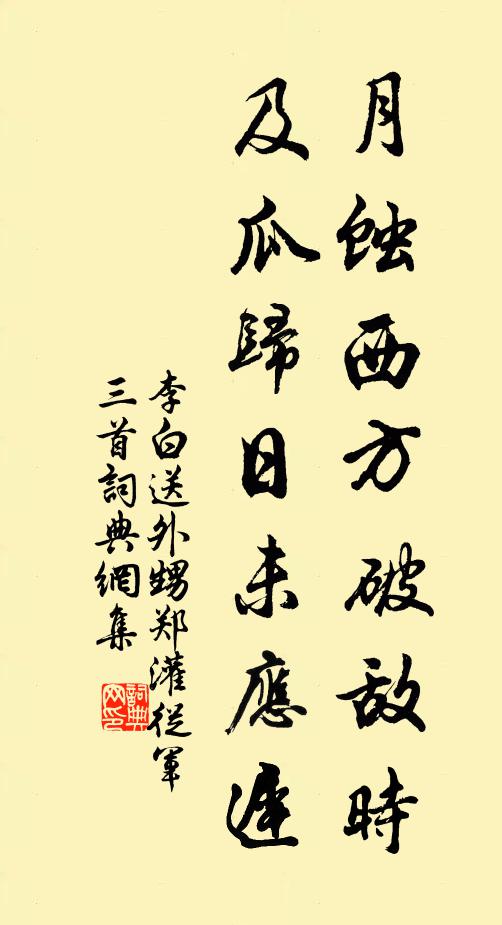 月蝕西方破敌時
及瓜歸日未應遲
李白送外甥郑灌從軍
三首詞典網集
詞典
网印